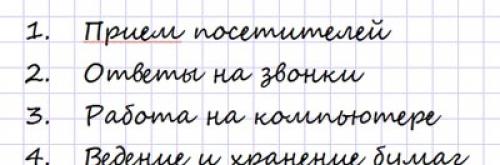 1. Прием посетителей
2. Ответы на звонки
3. Работа на компьютере
4. Ведение и хранение бумаг